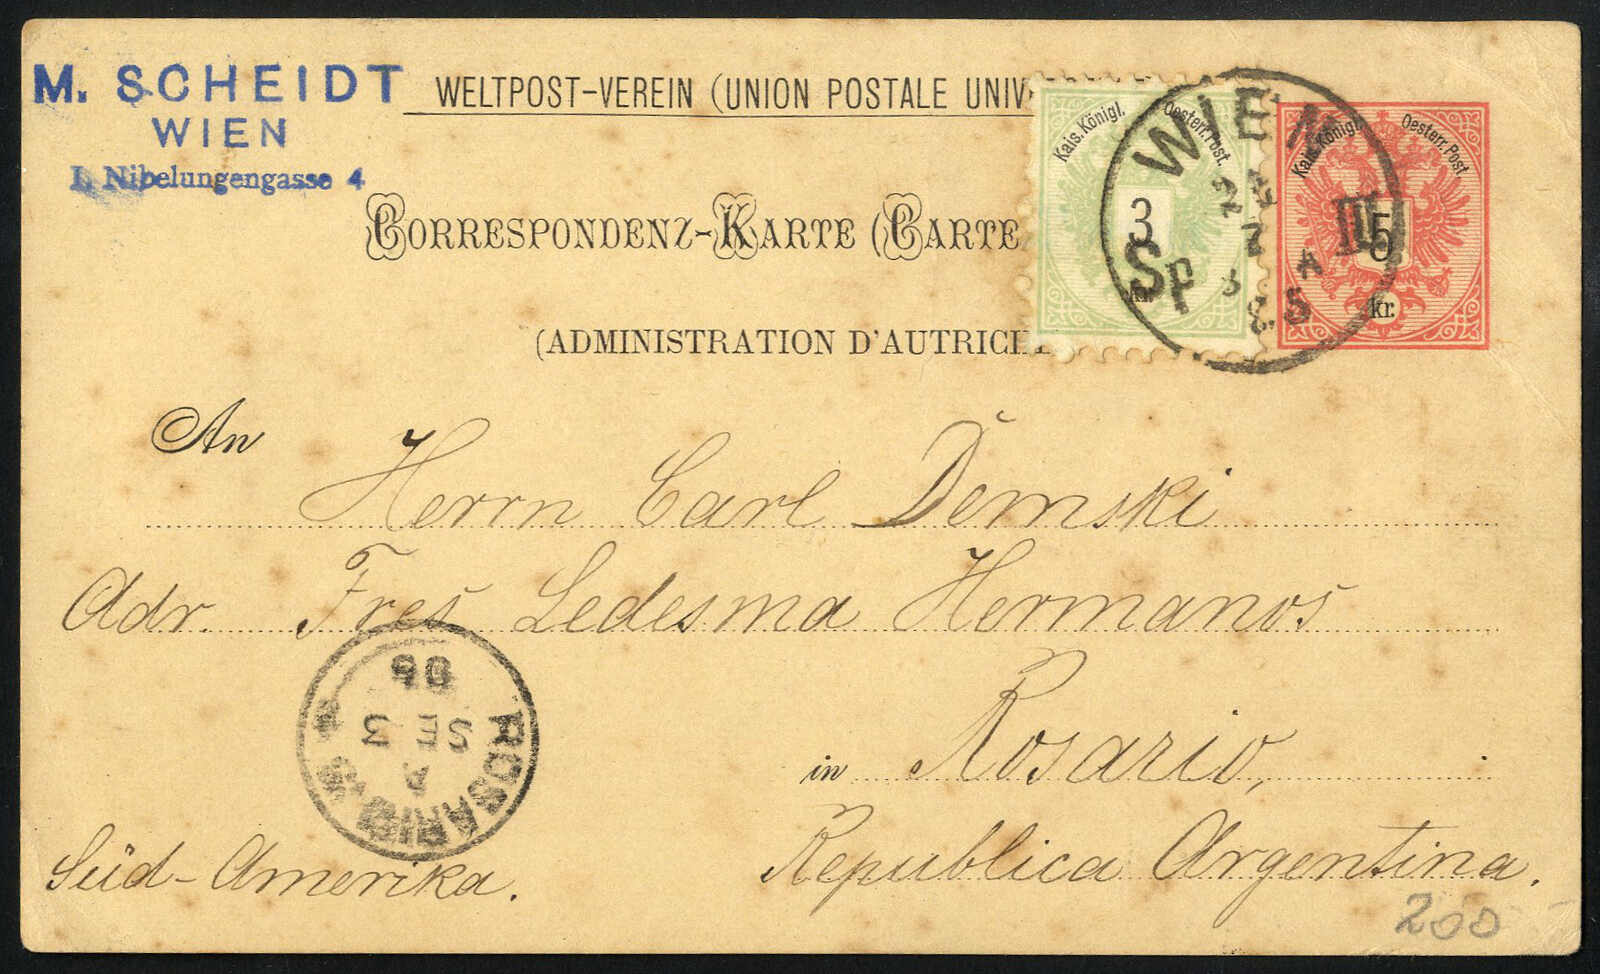 M. SCHEIDT
WIEN
I. Nibelungengasse 4
WELTPOST-VEREIN (UNION POSTALE UNIV
CORRESPONDENZ-KARTE (CARTE
(ADMINISTRATION D'AUTRICH
Kais. Königl. Oesterr. Post.
3
Kais. Königl. Oesterr. Post
5
kr.
WIEN
Sp
III
An Herrn Carl Demski
Adr. Fres Ledesma Hermanos
in Rosario,
Republica Argentina.
Süd-Amerika.
ROSARIO
A
SE 3
200